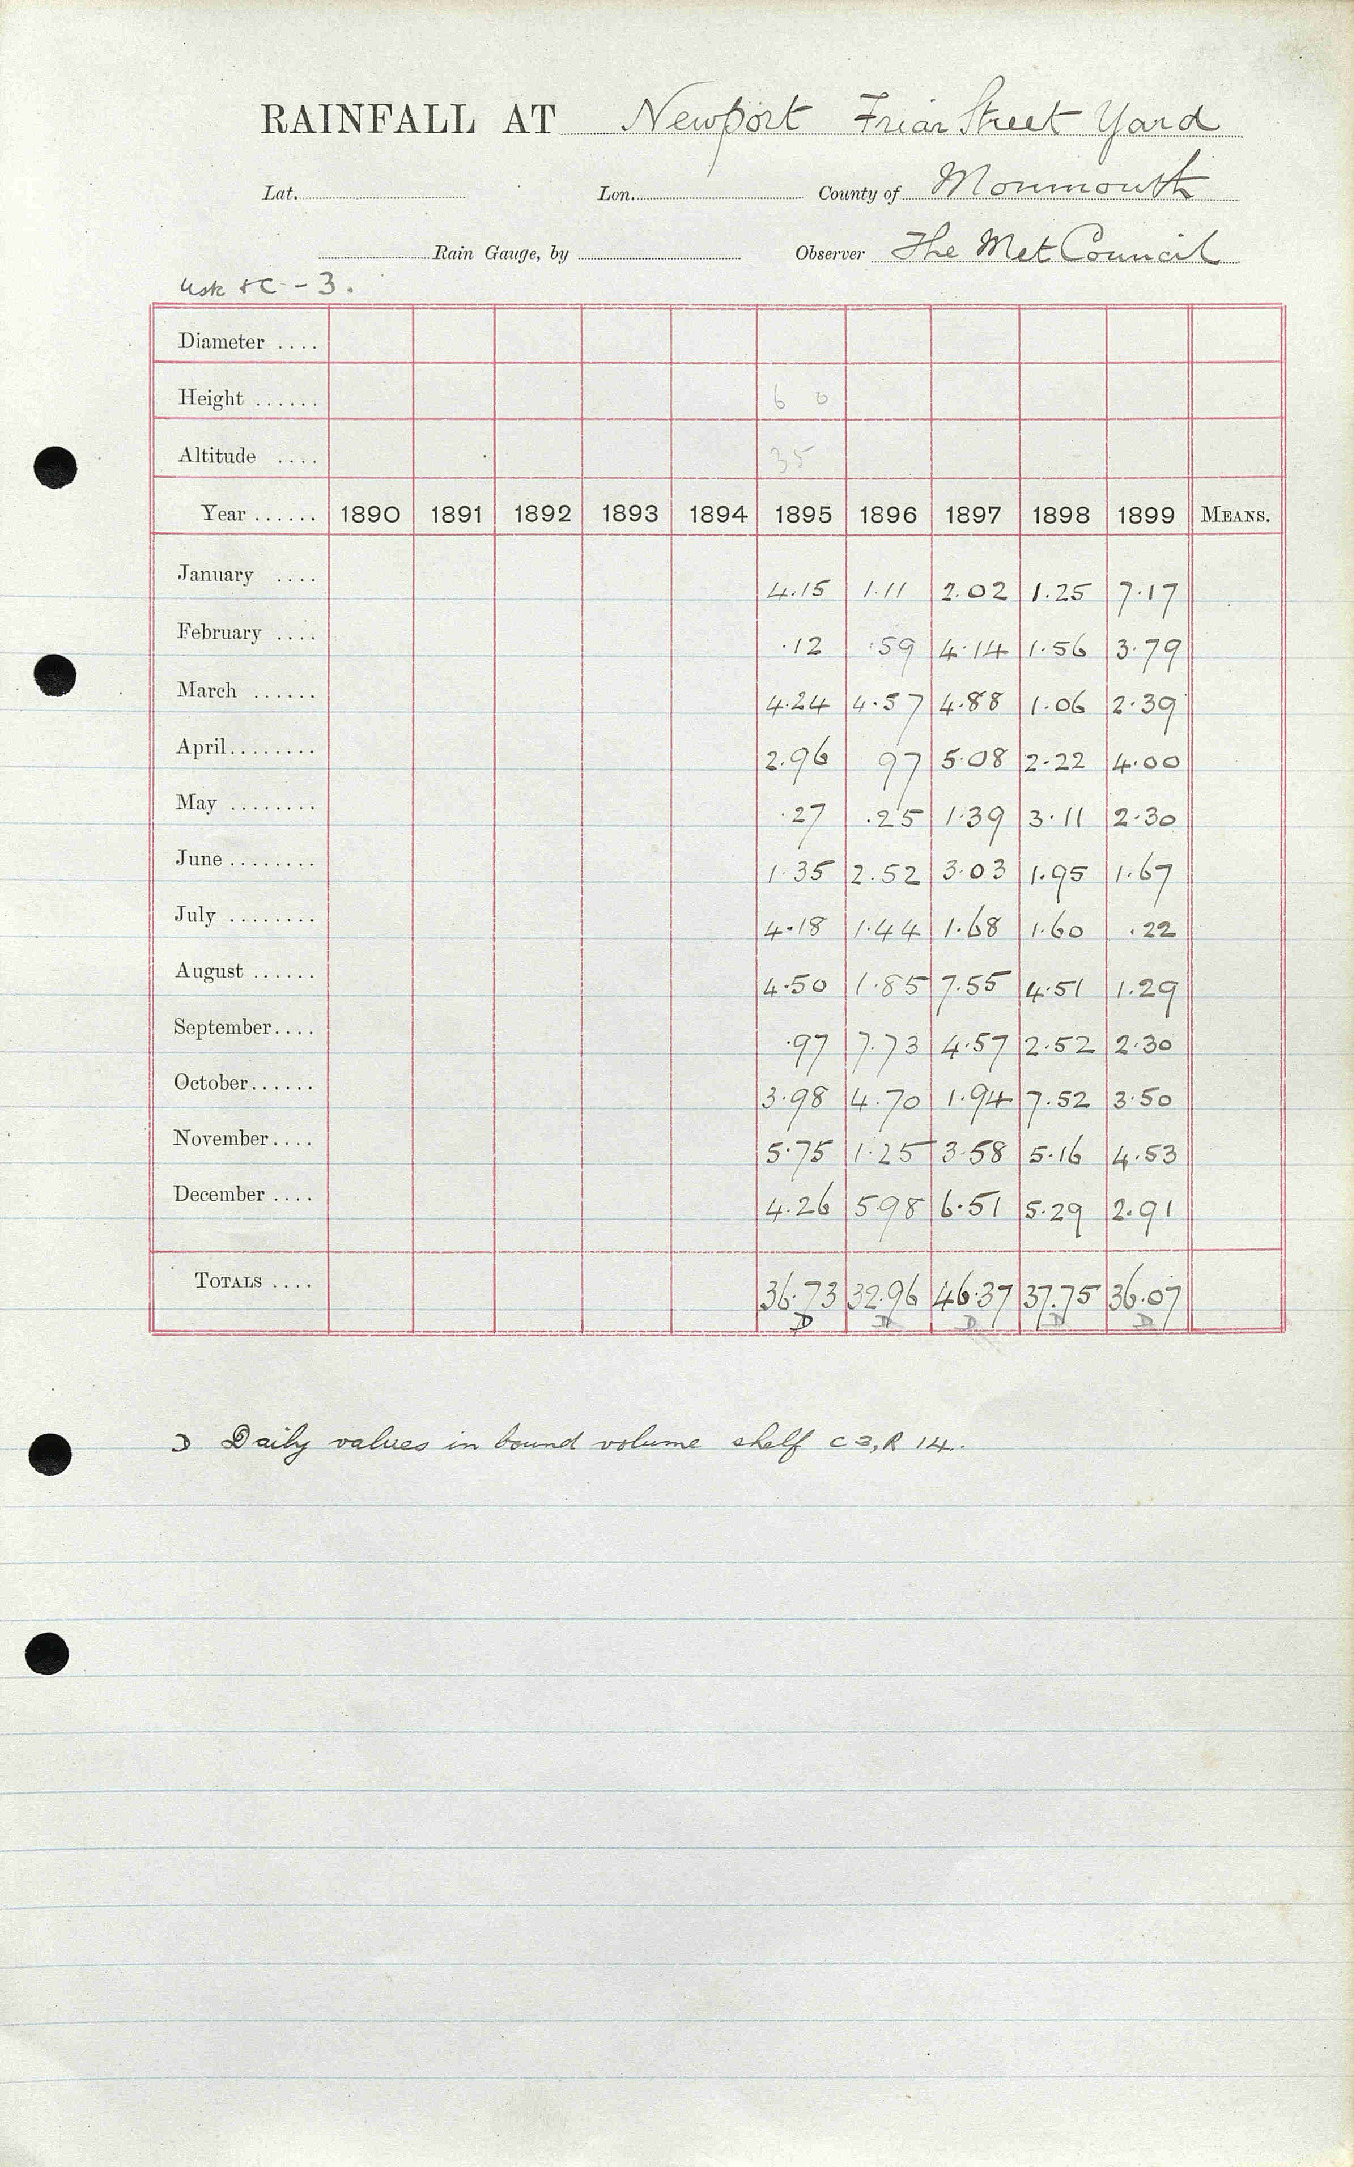 RAINFALL AT Newport Friar Street Yard
Lat. Lon. County of Monmouth
Rain Gauge, by Observer The Met Council
Usk &C - 3.
Diameter ....
Height ...... 6 0
Altitude .... 35
Year ...... 1890 1891 1892 1893 1894 1895 1896 1897 1898 1899 MEANS.
January .... 4.15 1.11 2.02 1.25 7.17
February .... .12 .59 4.14 1.56 3.79
March ...... 4.24 4.57 4.88 1.06 2.39
April........ 2.96 97 5.08 2.22 4.00
May ........ .27 .25 1.39 3.11 2.30
June ........ 1.35 2.52 3.03 1.95 1.67
July ........ 4.18 1.44 1.68 1.60 .22
August ...... 4.50 1.85 7.55 4.51 1.29
September.... .97 7.73 4.57 2.52 2.30
October...... 3.98 4.70 1.94 7.52 3.50
November.... 5.75 1.25 3.58 5.16 4.53
December .... 4.26 5 98 6.51 5.29 2.91
TOTALS .... 36.73 32.96 46.37 37.75 36.07
D D D D D
D Daily values in bound volume shelf C3, R 14.